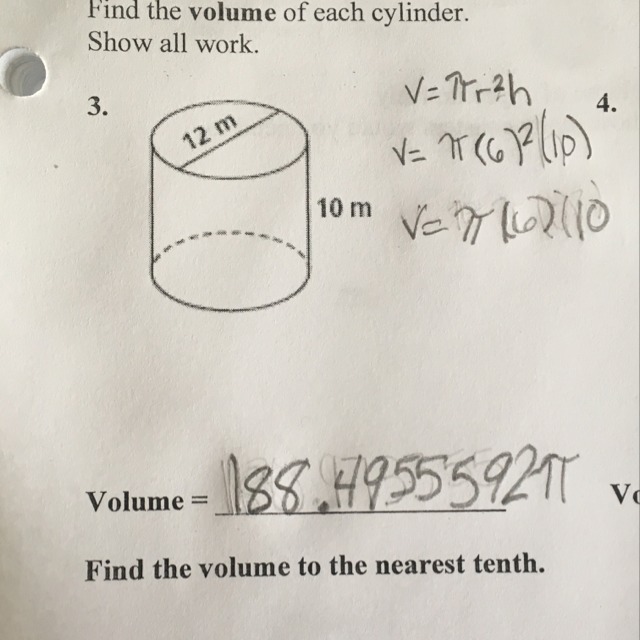 Find the volume of each cylinder.
Show all work.
3.
12 m
10 m
V=πr²h
V= π(6)²(10)
V= π(6)(10
4.
Volume = 188.4955592π
Vo
Find the volume to the nearest tenth.